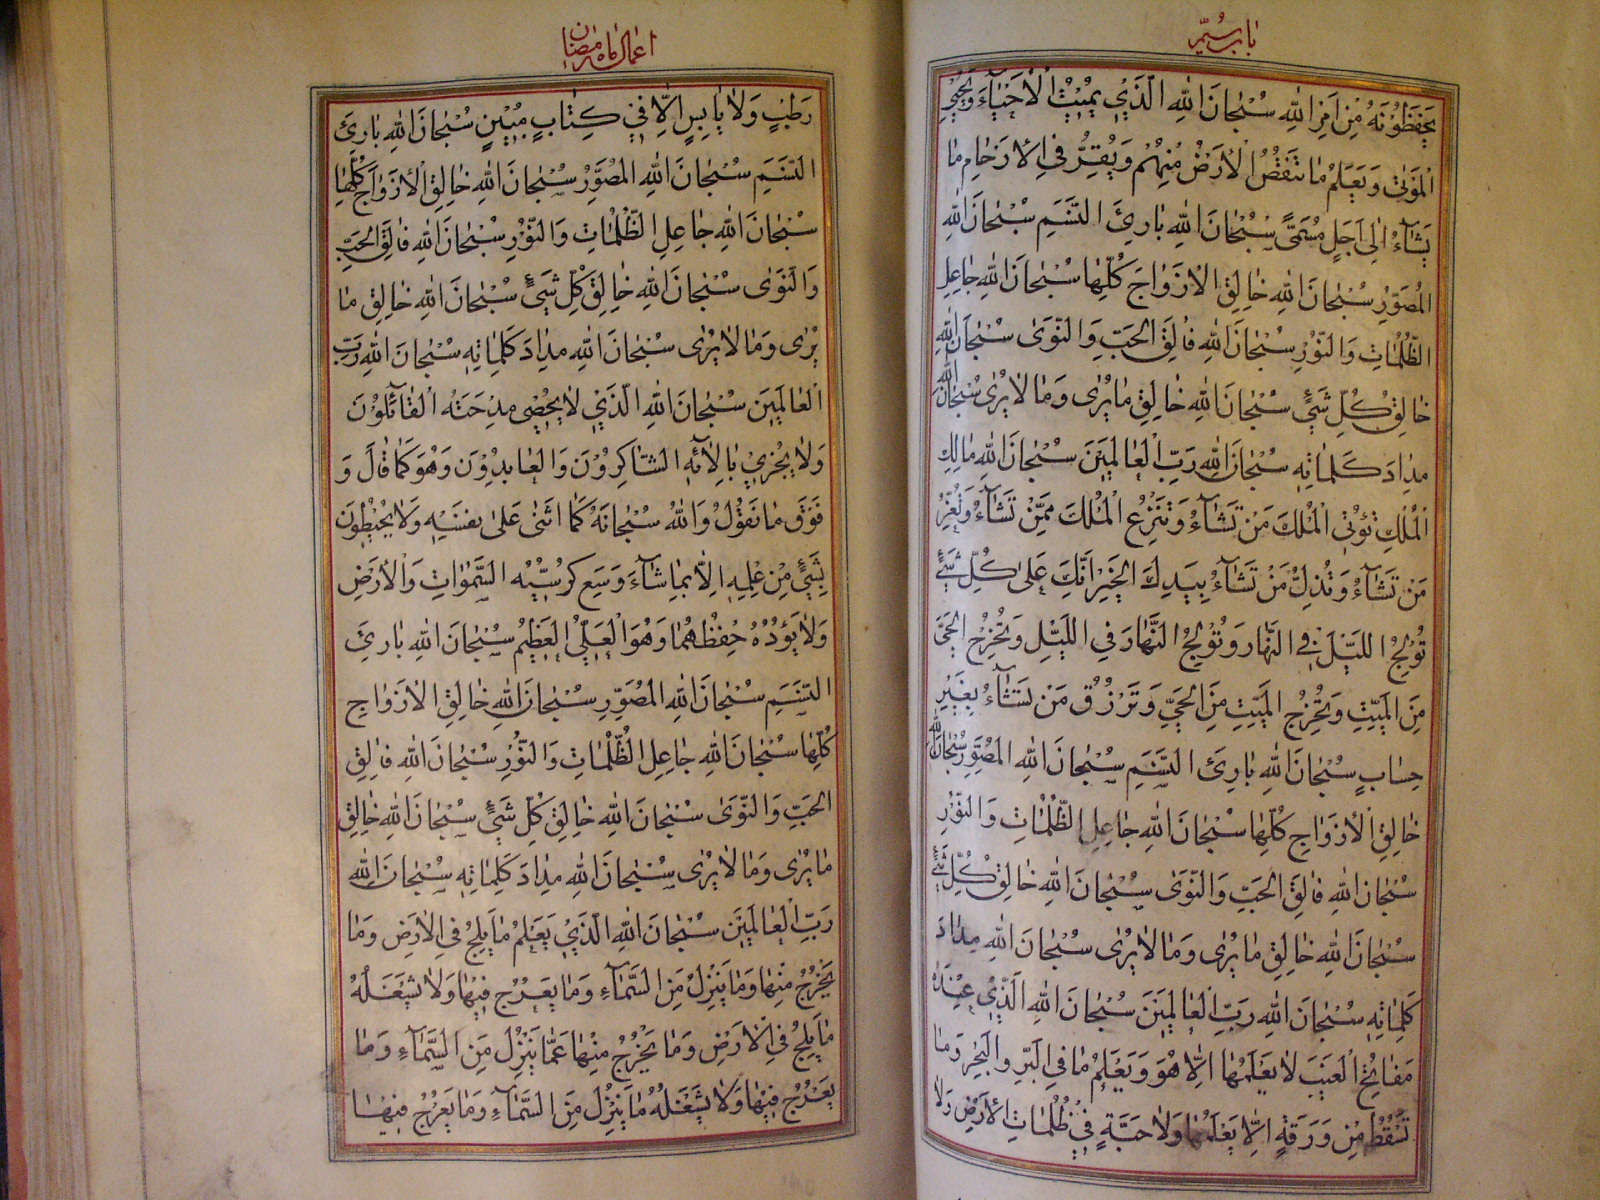 باب سیّم
يَحْفَظُونَهُ مِنْ اَمْرِ اللهِ سُبْحانَ اللهِ الَّذِي يُمِيتُ الْأَحْياءَ وَيُحْيِي
الْمَوْتىٰ وَيَعْلَمُ ما تَنْقُصُ الْأَرْضُ مِنْهُمْ وَيُقِرُّ فِي الْأَرْحامِ ما
يَشآءُ اِلىٰ اَجَلٍ مُسَمّىً سُبْحانَ اللهِ بارِئَ النَّسَمِ سُبْحانَ اللهِ
الْمُصَوِّرِ سُبْحانَ اللهِ خالِقِ الْأَزْواجِ كُلِّها سُبْحانَ اللهِ جاعِلِ
الظُّلُماتِ وَالنُّورِ سُبْحانَ اللهِ فالِقِ الْحَبِّ وَالنَّوىٰ سُبْحانَ اللهِ
خالِقِ كُلِّ شَيْءٍ سُبْحانَ اللهِ خالِقِ ما يُرىٰ وَما لا يُرىٰ سُبْحانَ اللهِ
مِدادَ كَلِماتِهِ سُبْحانَ اللهِ رَبِّ الْعالَمِينَ سُبْحانَ اللهِ مالِكِ
الْمُلْكِ تُؤْتِي الْمُلْكَ مَنْ تَشآءُ وَتَنْزِعُ الْمُلْكَ مِمَّنْ تَشآءُ وَتُعِزُّ
مَنْ تَشآءُ وَتُذِلُّ مَنْ تَشآءُ بِيَدِكَ الْخَيْرُ اِنَّكَ عَلىٰ كُلِّ شَيْءٍ
تُولِجُ اللَّيْلَ فِي النَّهارِ وَتُولِجُ النَّهارَ فِي اللَّيْلِ وَتُخْرِجُ الْحَيَّ
مِنَ الْمَيِّتِ وَتُخْرِجُ الْمَيِّتَ مِنَ الْحَيِّ وَتَرْزُقُ مَنْ تَشآءُ بِغَيْرِ
حِسابٍ سُبْحانَ اللهِ بارِئَ النَّسَمِ سُبْحانَ اللهِ الْمُصَوِّرِ سُبْحانَ اللهِ
خالِقِ الْأَزْواجِ كُلِّها سُبْحانَ اللهِ جاعِلِ الظُّلُماتِ وَالنُّورِ
سُبْحانَ اللهِ فالِقِ الْحَبِّ وَالنَّوىٰ سُبْحانَ اللهِ خالِقِ كُلِّ شَيْءٍ
سُبْحانَ اللهِ خالِقِ ما يُرىٰ وَما لا يُرىٰ سُبْحانَ اللهِ مِدادَ
كَلِماتِهِ سُبْحانَ اللهِ رَبِّ الْعالَمِينَ سُبْحانَ اللهِ الَّذِي عِنْدَهُ
مَفاتِحُ الْغَيْبِ لا يَعْلَمُها اِلّا هُوَ وَيَعْلَمُ ما فِي الْبَرِّ وَالْبَحْرِ وَما
تَسْقُطُ مِنْ وَرَقَةٍ اِلّا يَعْلَمُها وَلا حَبَّةٍ فِي ظُلُماتِ الْأَرْضِ وَلا
اعمال ماه رمضان
رَطْبٍ وَلا يابِسٍ اِلّا فِي كِتابٍ مُبِينٍ سُبْحانَ اللهِ بارِئَ
النَّسَمِ سُبْحانَ اللهِ الْمُصَوِّرِ سُبْحانَ اللهِ خالِقِ الْأَزْواجِ كُلِّها
سُبْحانَ اللهِ جاعِلِ الظُّلُماتِ وَالنُّورِ سُبْحانَ اللهِ فالِقِ الْحَبِّ
وَالنَّوىٰ سُبْحانَ اللهِ خالِقِ كُلِّ شَيْءٍ سُبْحانَ اللهِ خالِقِ ما
يُرىٰ وَما لا يُرىٰ سُبْحانَ اللهِ مِدادَ كَلِماتِهِ سُبْحانَ اللهِ رَبِّ
الْعالَمِينَ سُبْحانَ اللهِ الَّذِي لا يُحْصِي مِدْحَتَهُ الْقآئِلُونَ
وَلا يَجْزِي بِآلائِهِ الشّاكِرُونَ وَالْعابِدُونَ وَهُوَ كَما قالَ وَ
فَوْقَ ما نَقُولُ وَاللهُ سُبْحانَهُ كَما اَثْنىٰ عَلىٰ نَفْسِهِ وَلا يُحِيطُونَ
بِشَيْءٍ مِنْ عِلْمِهِ اِلّا بِما شآءَ وَسِعَ كُرْسِيُّهُ السَّمٰواتِ وَالْأَرْضَ
وَلا يَؤُدُهُ حِفْظُهُما وَهُوَ الْعَلِيُّ الْعَظِيمُ سُبْحانَ اللهِ بارِئَ
النَّسَمِ سُبْحانَ اللهِ الْمُصَوِّرِ سُبْحانَ اللهِ خالِقِ الْأَزْواجِ
كُلِّها سُبْحانَ اللهِ جاعِلِ الظُّلُماتِ وَالنُّورِ سُبْحانَ اللهِ فالِقِ
الْحَبِّ وَالنَّوىٰ سُبْحانَ اللهِ خالِقِ كُلِّ شَيْءٍ سُبْحانَ اللهِ خالِقِ
ما يُرىٰ وَما لا يُرىٰ سُبْحانَ اللهِ مِدادَ كَلِماتِهِ سُبْحانَ اللهِ
رَبِّ الْعالَمِينَ سُبْحانَ اللهِ الَّذِي يَعْلَمُ ما يَلِجُ فِي الْأَرْضِ وَما
يَخْرُجُ مِنْها وَما يَنْزِلُ مِنَ السَّمآءِ وَما يَعْرُجُ فِيها وَلا يَشْغَلُهُ
ما يَلِجُ فِي الْأَرْضِ وَما يَخْرُجُ مِنْها عَمّا يَنْزِلُ مِنَ السَّمآءِ وَما
يَعْرُجُ فِيها وَلا يَشْغَلُهُ ما يَنْزِلُ مِنَ السَّمآءِ وَما يَعْرُجُ فِيها